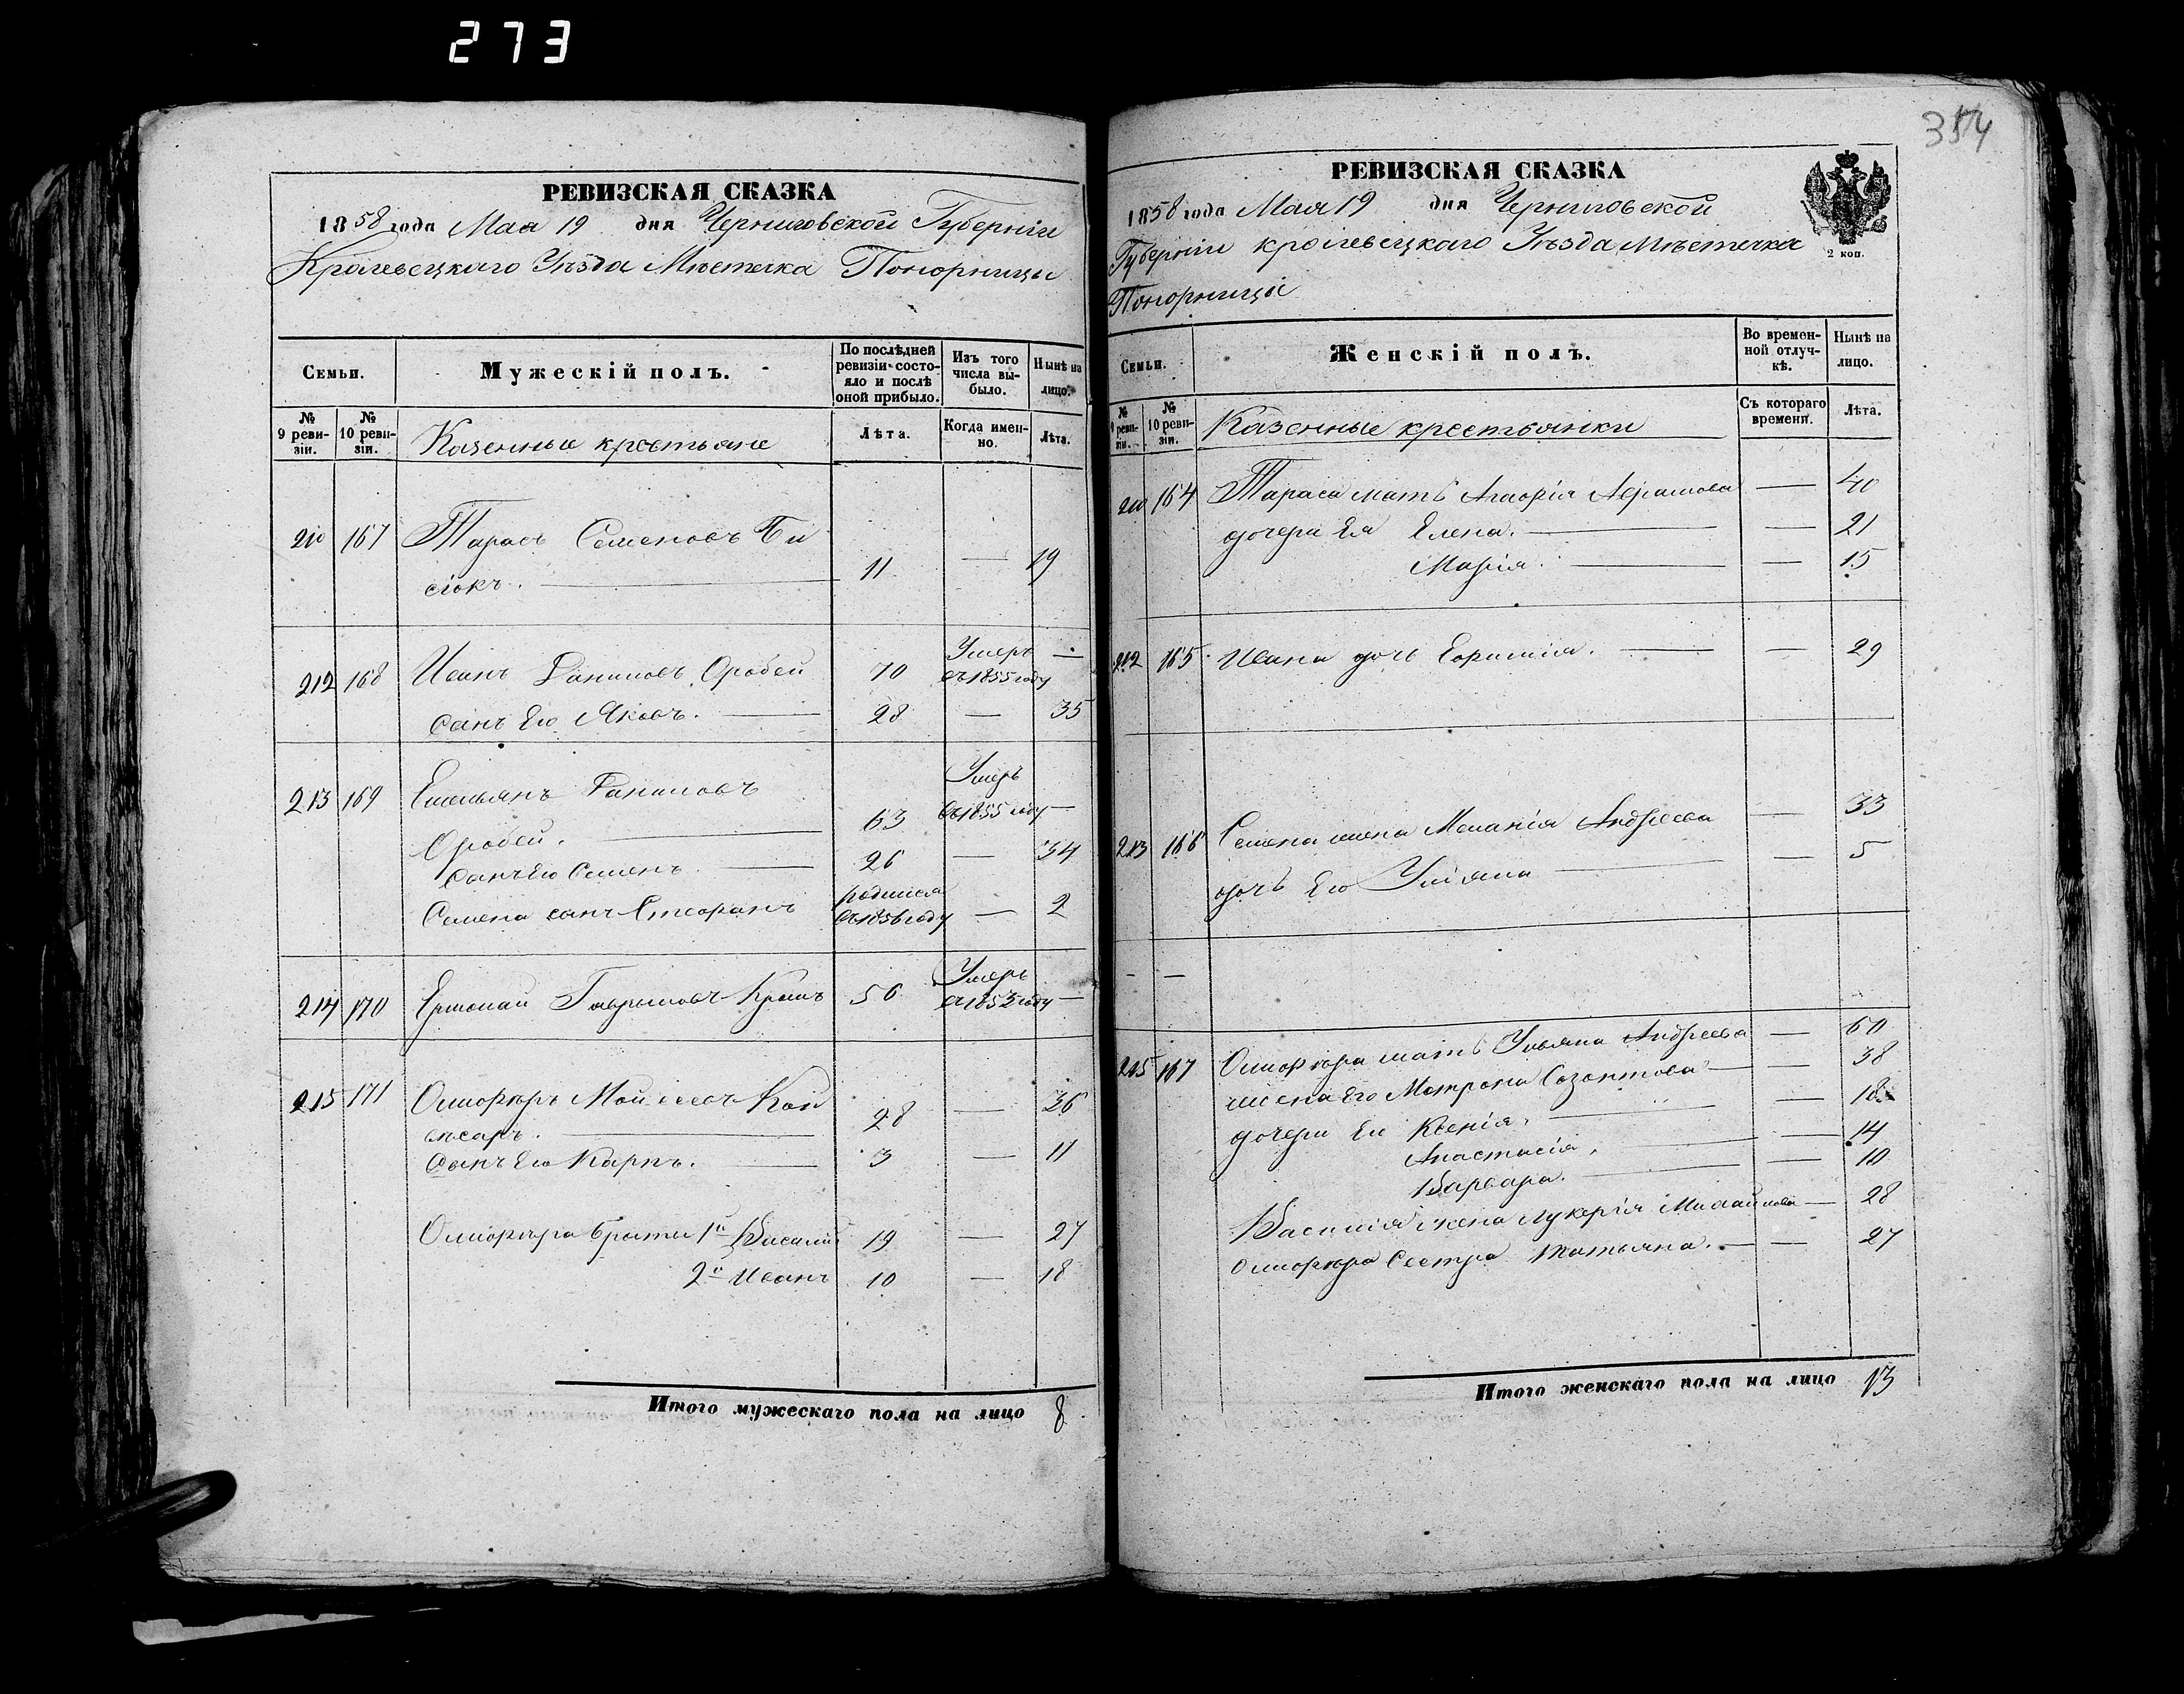 273
354
РЕВИЗСКАЯ СКАЗКА
1858 года Мая 19 дня Черниговской Губерніи
Кролевецкаго Уѣзда Мѣстечка Понорницы
Семьи. Мужескій полъ. По послѣдней ревизіи состояло и послѣ оной прибыло. Изъ того числа выбыло. Нынѣ на лицо.
№ 9 ревизіи. № 10 ревизіи. Казенные крестьяне Лѣта. Когда именно. Лѣта.
210 167 Тарасъ Семеновъ Би
сюкъ. 11 — 19
212 168 Иванъ Даниловъ Оробей 70 Умеръ въ 1855 году —
Сынъ Его Яковъ. 28 — 35
213 169 Емельянъ Даниловъ
Оробей. 63 Умеръ въ 1855 году —
Сынъ Его Семенъ 26 — 34
Семена сынъ Стефанъ родился въ 1856 году — 2
214 170 Ермолай Гавриловъ 56 Умеръ въ 1853 году —
215 171 Онофрѣръ Моисеевъ 28 — 36
Сынъ Его Карпъ. 3 — 11
Онофрѣра братья 1й Василій 19 — 27
2й Иванъ 10 — 18
Итого мужескаго пола на лицо 8
РЕВИЗСКАЯ СКАЗКА
1858 года Мая 19 дня Черниговской
Губерніи кролевецкаго Уѣзда Мѣстечка
Понорницы
2 коп.
Семьи. Женскій полъ. Во временной отлучкѣ. Нынѣ на лицо.
№ 9 ревизіи. № 10 ревизіи. Казенные крестьянки Съ котораго времени. Лѣта.
210 164 Тараса мать Агафія Абрамова — 40
дочери Ея Елена. — 21
Марія. — 15
212 165 Ивана дочь Евфимія. — 29
213 166 Семена жена Меланія Андреева — 33
дочь Его Уліяна — 5
— —
215 167 Онофрѣра мать Ульяна Андреева — 60
жена Его Матрона Созонтова — 38
дочери Ея Ксенія. — 18
Анастасія. — 14
Варвара. — 10
Василія жена Лукерія Михайлова — 28
Онофрѣра Сестра Татьяна. — 27
Итого женскаго пола на лицо 13